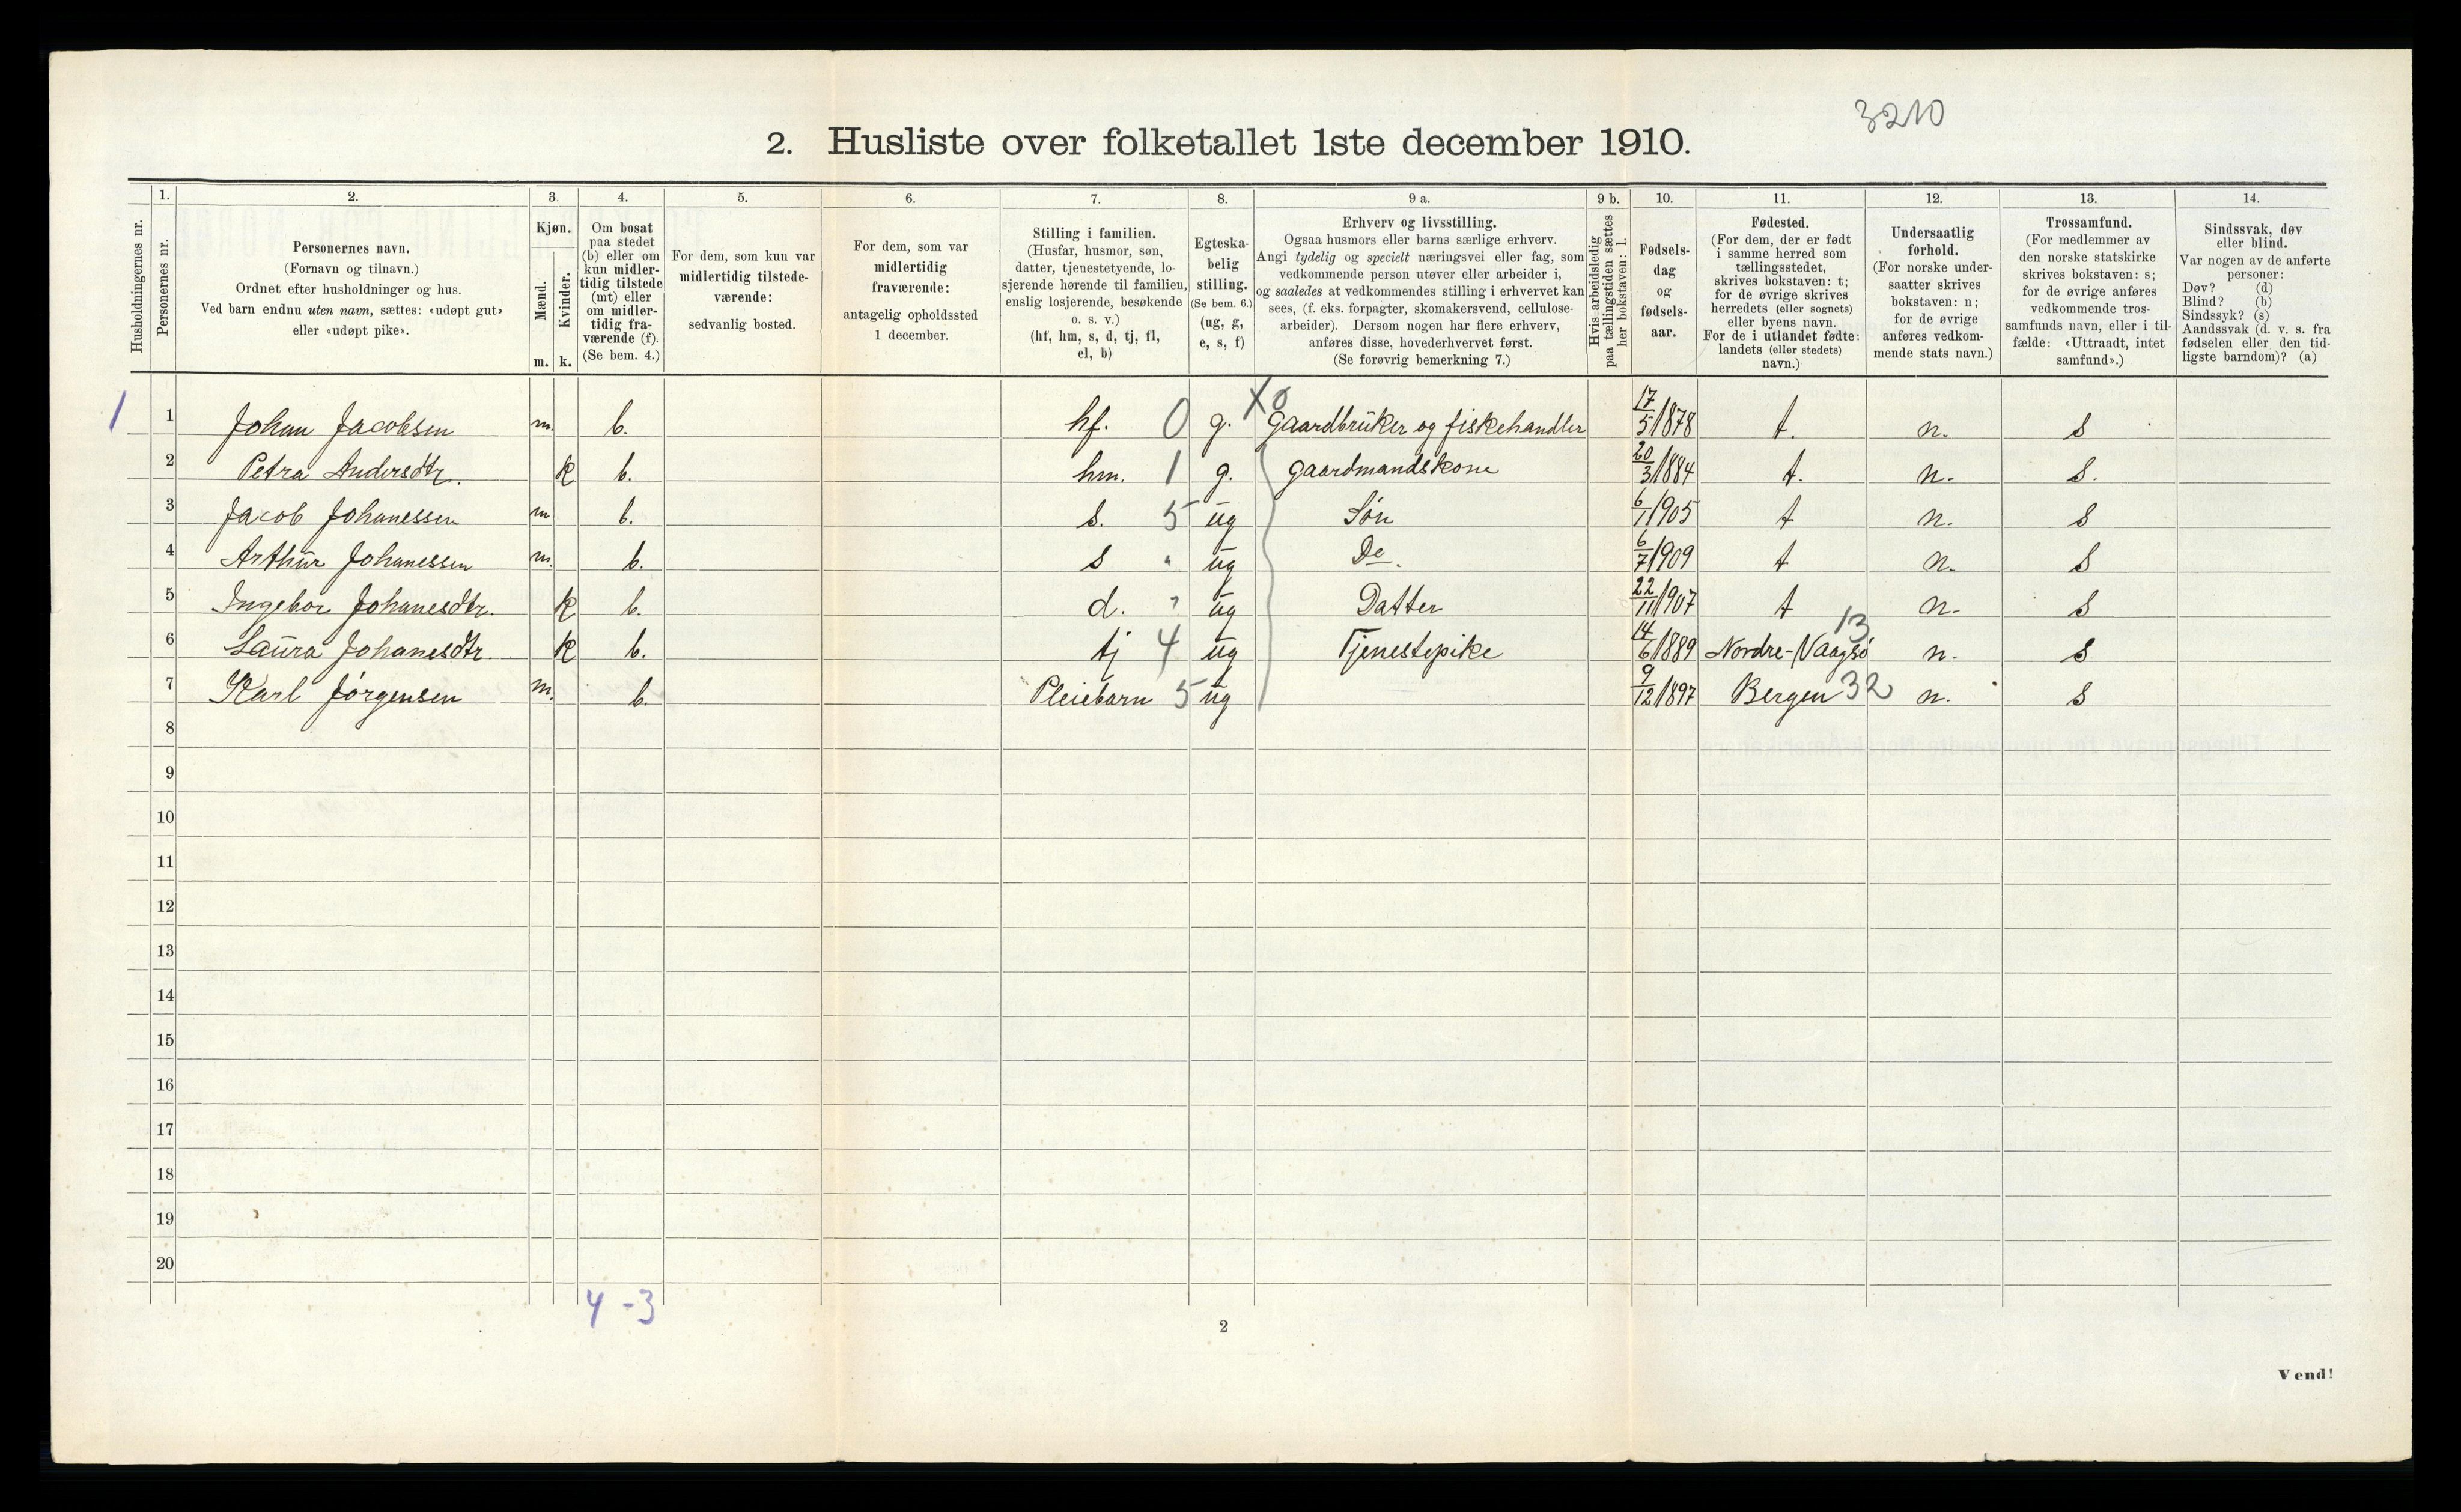 3210
2. Husliste over folketallet 1ste december 1910.
Husholdningernes nr.
1.
Personernes nr.
2.
Personernes navn.
(Fornavn og tilnavn.)
Ordnet efter husholdninger og hus.
Ved barn endnu uten navn, sættes: «udøpt gut»
eller «udøpt pike».
3.
Kjøn.
Mænd.
Kvinder.
m. k.
4.
Om bosat
paa stedet
(b) eller om
kun midler-
tidig tilstede
(mt) eller
om midler-
tidig fra-
værende (f).
(Se bem. 4.)
5.
For dem, som kun var
midlertidig tilstede-
værende:
sedvanlig bosted.
6.
For dem, som var
midlertidig
fraværende:
antagelig opholdssted
1 december.
7.
Stilling i familien.
(Husfar, husmor, søn,
datter, tjenestetyende, lo-
sjerende hørende til familien,
enslig losjerende, besøkende
o. s. v.)
(hf, hm, s, d, tj, fl,
el, b)
8.
Egteska-
belig
stilling.
(Se bem. 6.)
(ug, g,
e, s, f)
9 a.
Erhverv og livsstilling.
Ogsaa husmors eller barns særlige erhverv.
Angi tydelig og specielt næringsvei eller fag, som
vedkommende person utøver eller arbeider i,
og saaledes at vedkommendes stilling i erhvervet kan
sees, (f. eks. forpagter, skomakersvend, cellulose-
arbeider). Dersom nogen har flere erhverv,
anføres disse, hovederhvervet først.
(Se forøvrig bemerkning 7.)
9 b.
Hvis arbeidsledig
paa tællingstiden sættes
her bokstaven: l.
10.
Fødsels-
dag
og
fødsels-
aar.
11.
Fødested.
(For dem, der er født
i samme herred som
tællingsstedet,
skrives bokstaven: t;
for de øvrige skrives
herredets (eller sognets)
eller byens navn.
For de i utlandet fødte:
landets (eller stedets)
navn.)
12.
Undersaatlig
forhold.
(For norske under-
saatter skrives
bokstaven: n;
for de øvrige
anføres vedkom-
mende stats navn.)
13.
Trossamfund.
(For medlemmer av
den norske statskirke
skrives bokstaven: s;
for de øvrige anføres
vedkommende tros-
samfunds navn, eller i til-
fælde: «Uttraadt, intet
samfund».)
14.
Sindssvak, døv
eller blind.
Var nogen av de anførte
personer:
Døv? (d)
Blind? (b)
Sindssyk? (s)
Aandssvak (d. v. s. fra
fødselen eller den tid-
ligste barndom)? (a)
1 1 Johan Jacobsen m. b. hf. 0 g. X0 Gaardbrüker og fiskehandler 17/5 1878 t. n. s
2 Petra Andersdtr. k b. hm. 1 g. gaardmandskone 20/3 1884 t. n. s.
3 Jacob Johanessen m b. s. 5 ug Søn 6/1 1905 t n. s
4 Arthur Johanessen m. b. s " ug Do. 6/7 1909 t n. s
5 Ingebor Johanesdtr. k b. d. " ug Datter 22/11 1907 t n. s
6 Laura Johanesdtr. k b. tj 4 ug Tjenestepike 14/6 1889 Nordre-Vaagsø 13 n. s
7 Karl Jørgensen m. b. Pleiebarn 5 ug 9/12 1897 Bergen 32 n. s
8
9
10
11
12
13
14
15
16
17
18
19
20
4 - 3
2
Vend!